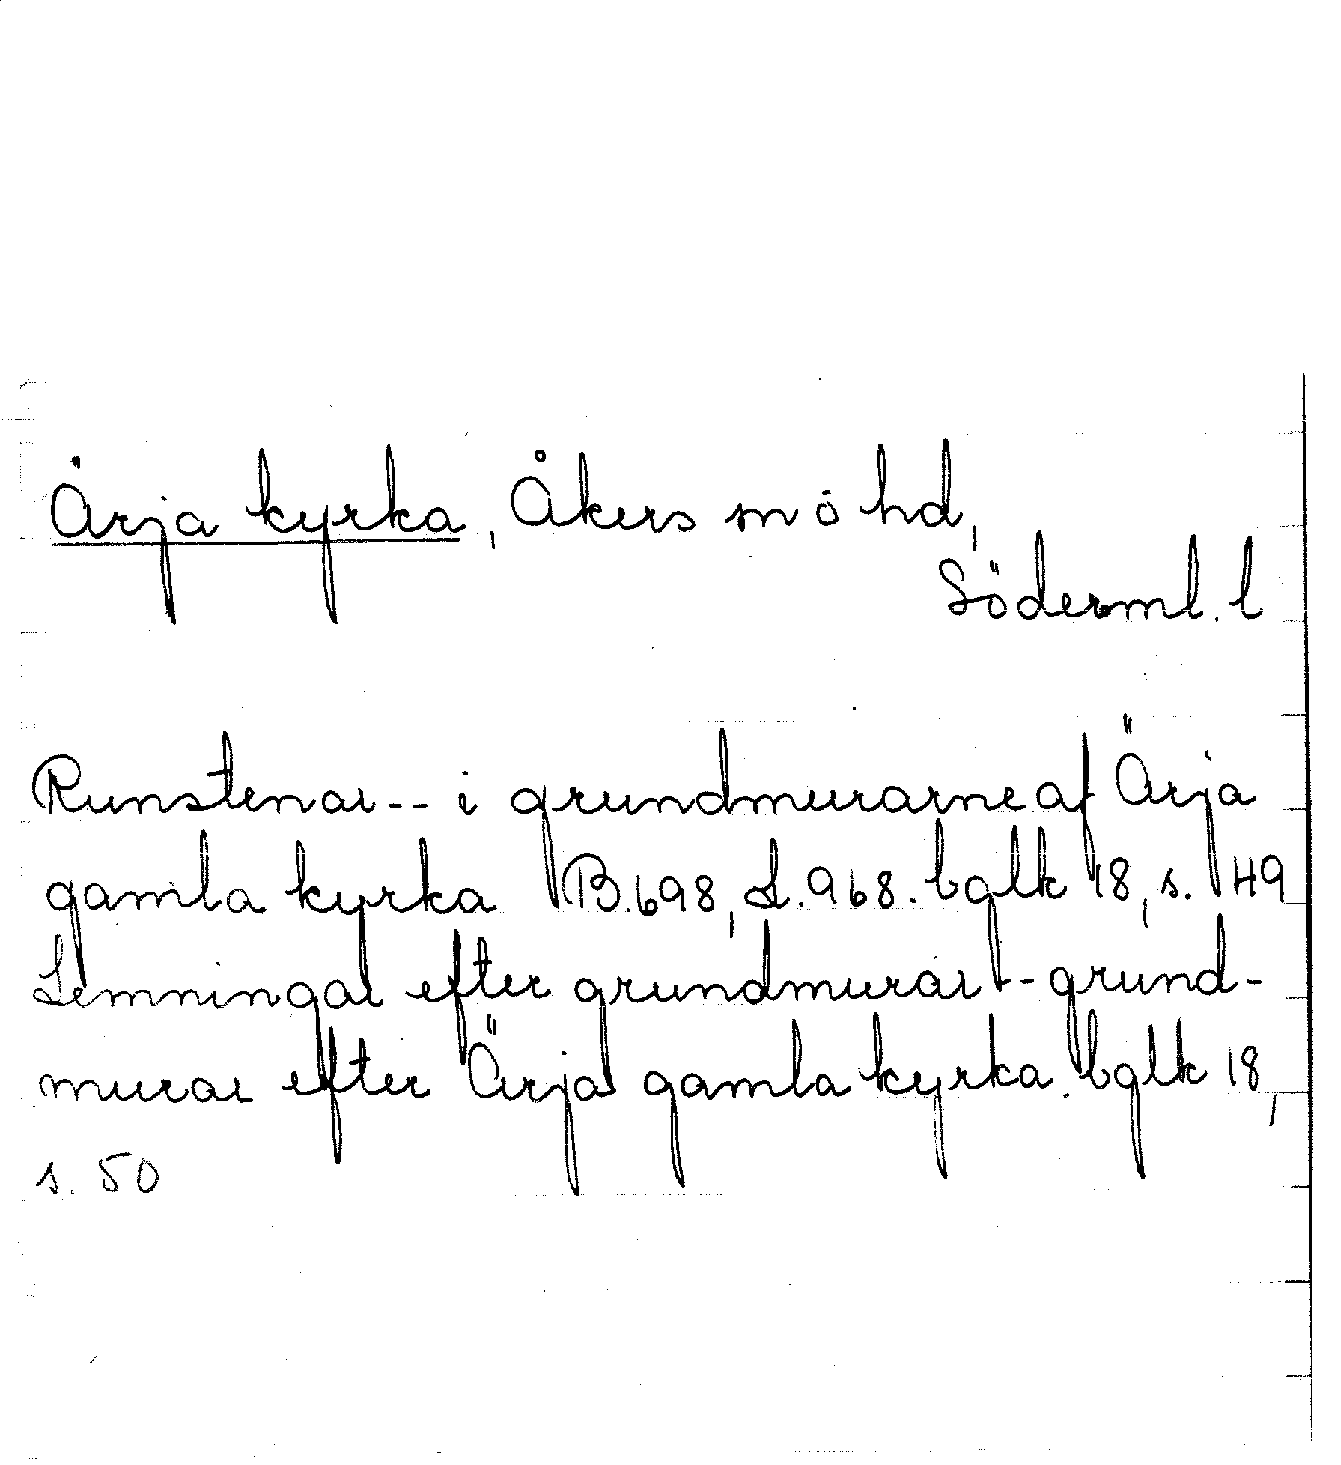 Ärja kyrka, Åkers sn ö hd,
Söderml. l
Runstenar -- i grundmurarne af Ärja
gamla kyrka B.698, L.968. bglk 18, s. 149
Lemningar efter grundmurar -- grund-
murar efter Ärja gamla kyrka. bglk 18,
s. 50